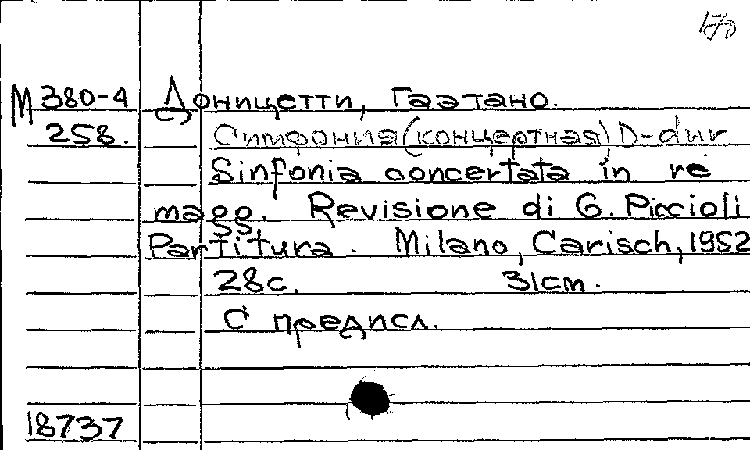 М 380-4 Доницетти, Гаэтано.
258. Симфония (концертная) D-dur
Sinfonia concertata in re
magg. Revisione di G. Piccioli
Partitura. Milano, Carisch, 1952
28с. 31cm.
С предисл.
18737